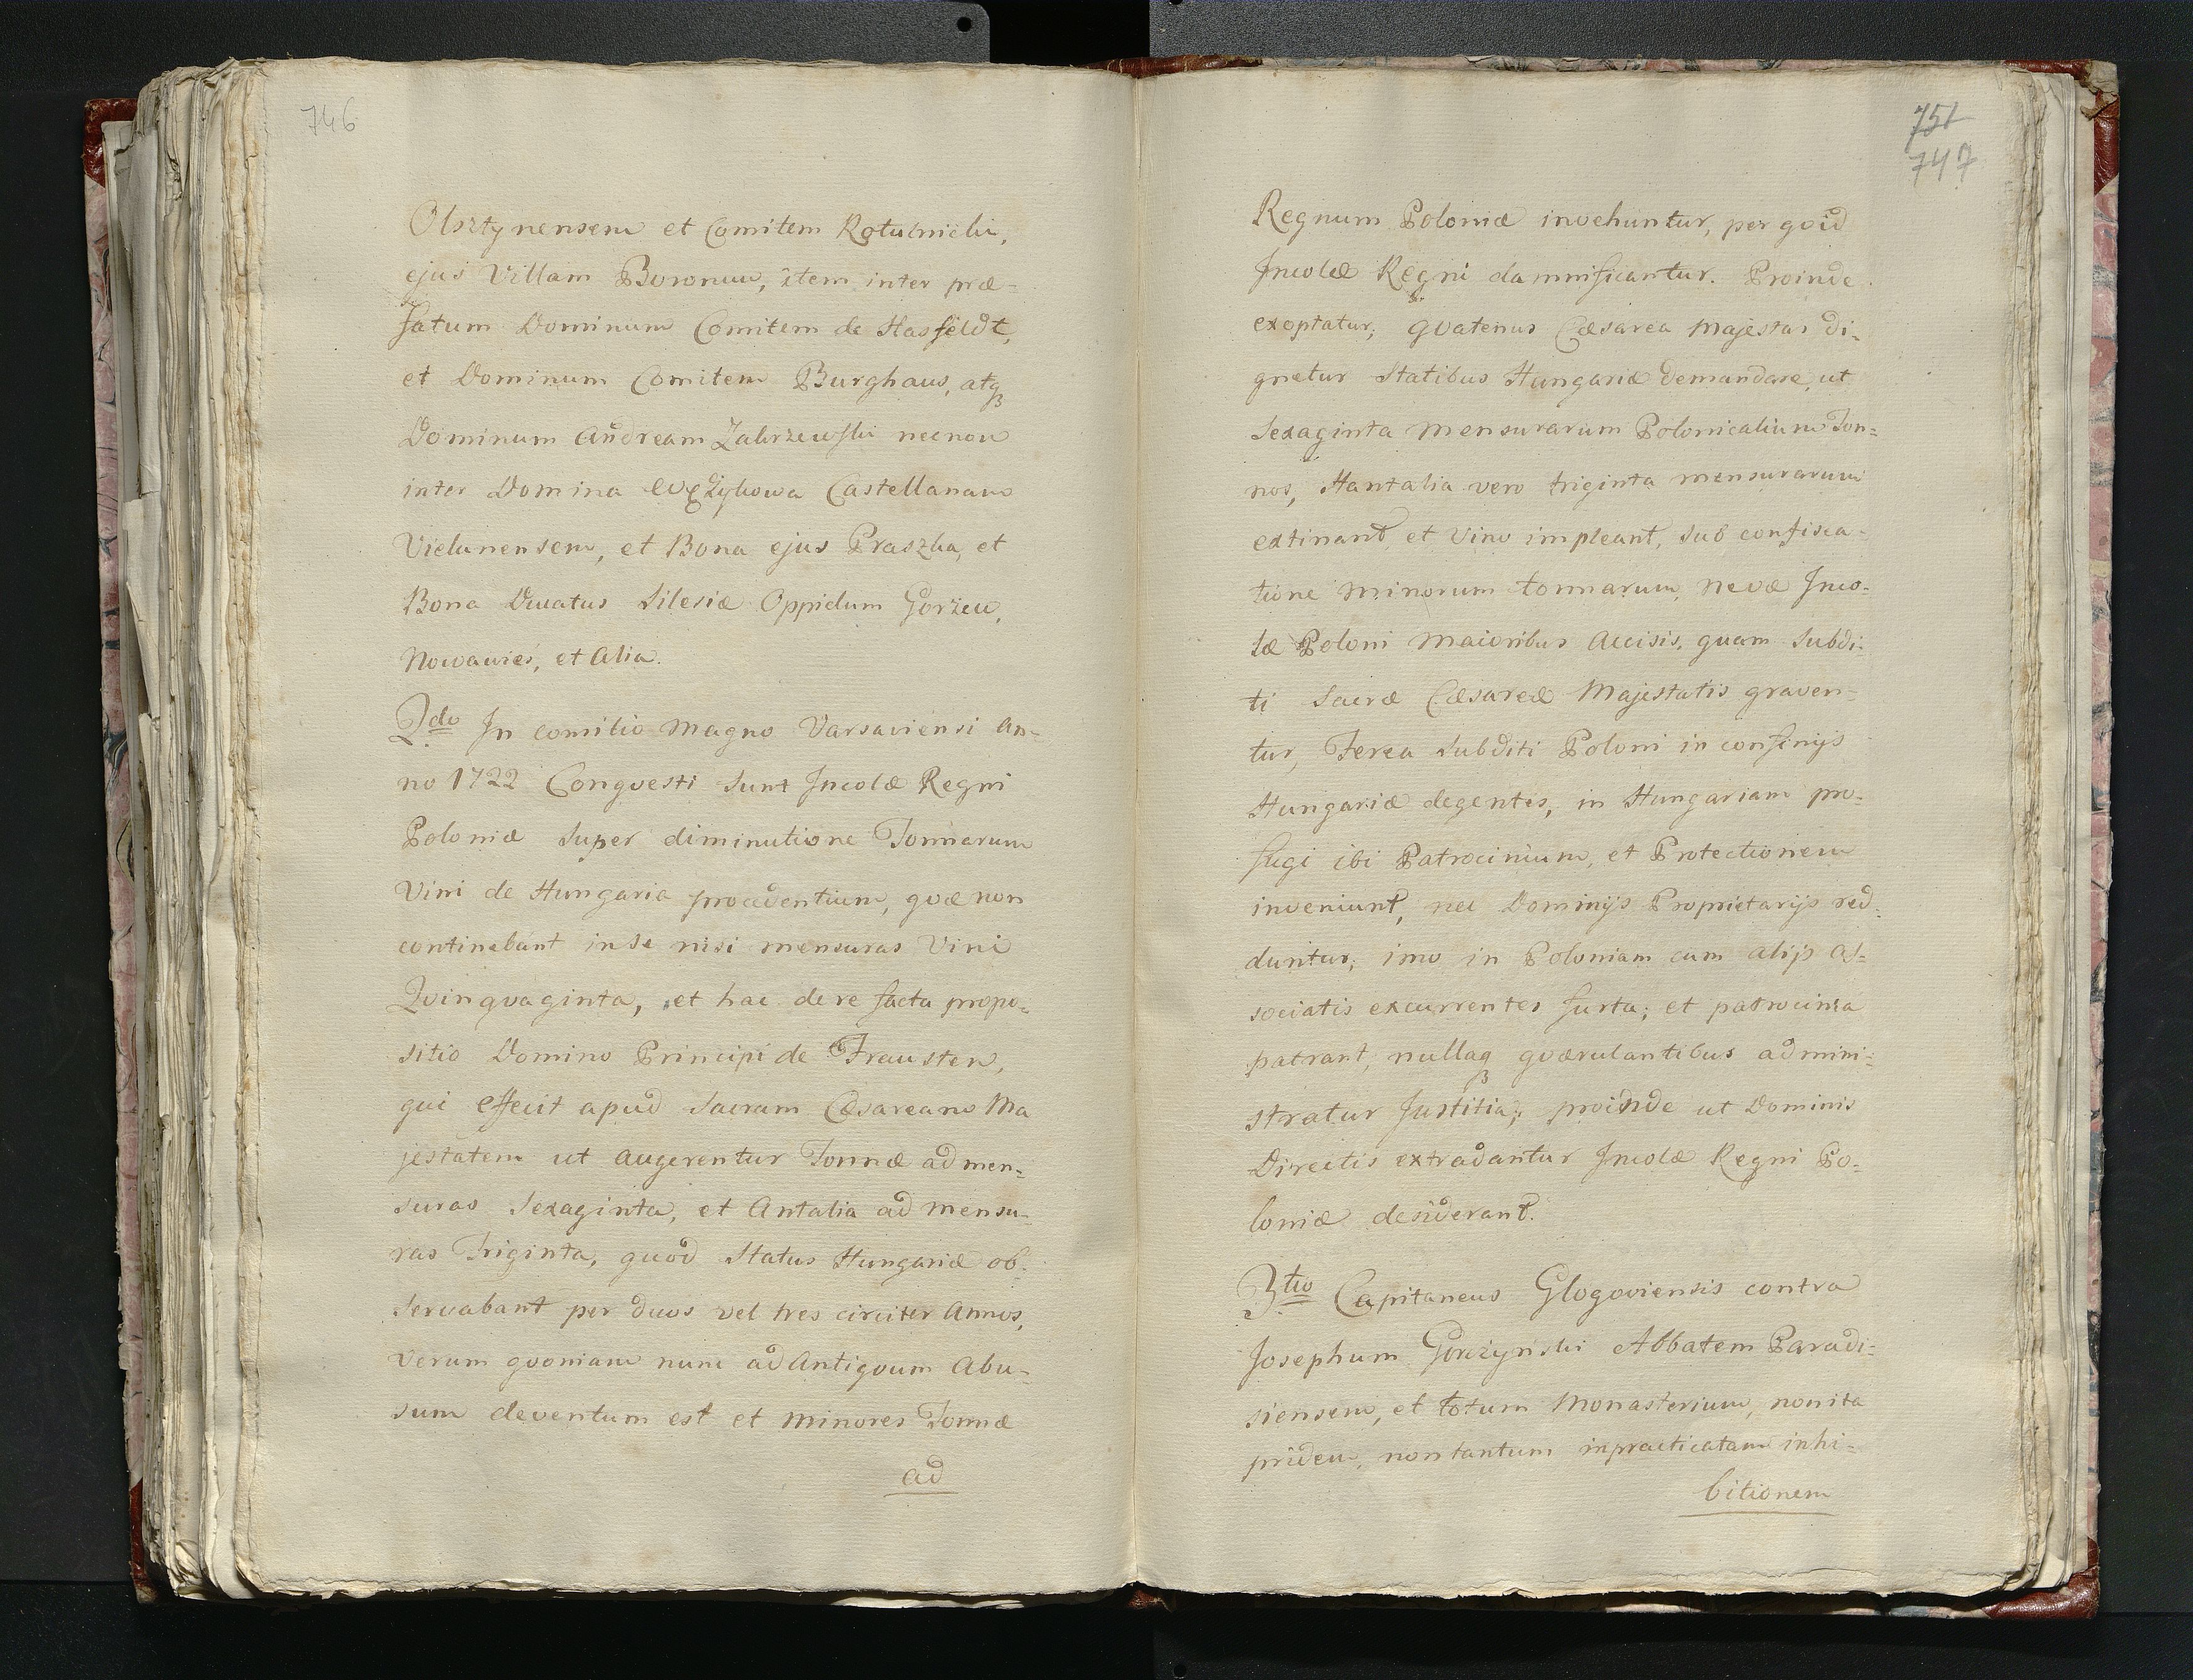 746
Olsztynensem et Comitem Kotulnicki,
ejus Villam Boronum, item inter præ-
fatum Dominum Comitem de Hasfeldt,
et Dominum Comitem Burghaus, atq3
Dominum Andream Zakrzewski necnon
inter Domina Wężykowa Castellanam
Vielunensem, et Bona ejus Praszka, et
Bona Ducatus Silesiæ Oppidum Gorzeu,
Nowawieś, et Alia.
2do In comitio Magno Varsaviensi An-
no 1722 Conqvesti sunt Jncolæ Regni
Poloniæ super diminutione Tonnarum
Vini de Hungaria procedentium, qvæ non
continebant in se nisi mensuras Vini
Qvinqvaginta, et hac de re facta propo-
sitio Domino Principi de Frausten,
qui Effecit apud Sacram Cæsaream Ma
jestatem ut Augerentur Tonnæ ad men-
suras Sexaginta, et Antalia ad mensu-
ras Triginta, quod Status Hungariæ ob-
servabant per duos vel tres circiter Annos,
Verum qvoniam nunc ad Antiqvum Abu-
sum deventum est et minores Tonnæ
ad
751
747
Regnum Poloniæ invehuntur, per qvid
Jncolæ Regni damnificantur. Proinde
exoptatur; qvatenus Cæsarea Majestas di-
gnetur Statibus Hungariæ demandare, ut
Sexaginta mensurarum Polonicalium Ton-
nos, Hantalia vero triginta mensurarum
extinant, et Vino impleant, sub confisca-
tione minorum tonnarum, nevæ Jnco-
læ Poloni maioribus Accisis, quam Subdi-
ti Sacræ Cæsareæ Majestatis graven-
tur, Ferea Subditi Poloni in confinijs
Hungariæ degentes, in Hungariam pro-
fugi ibi Patrocinium, et Protectionem
inveniunt, nec Dominijs Proprietarijs red-
duntur; imo in Poloniam cum alijs as-
sociatis excurrentes furta; et patrocinia
patrant, nullaq3 qværulantibus admini-
stratur Justitia; proinde ut Dominis
Directis extradantur Jncolæ Regni Po-
loniæ desiderant.
3tio Capitaneus Glogoviensis contra
Josephum Gorczyński Abbatem Paradi-
siensem, et totum Monasterium, non ita
pridem, non tantum inpracticatam inhi-
bitionem